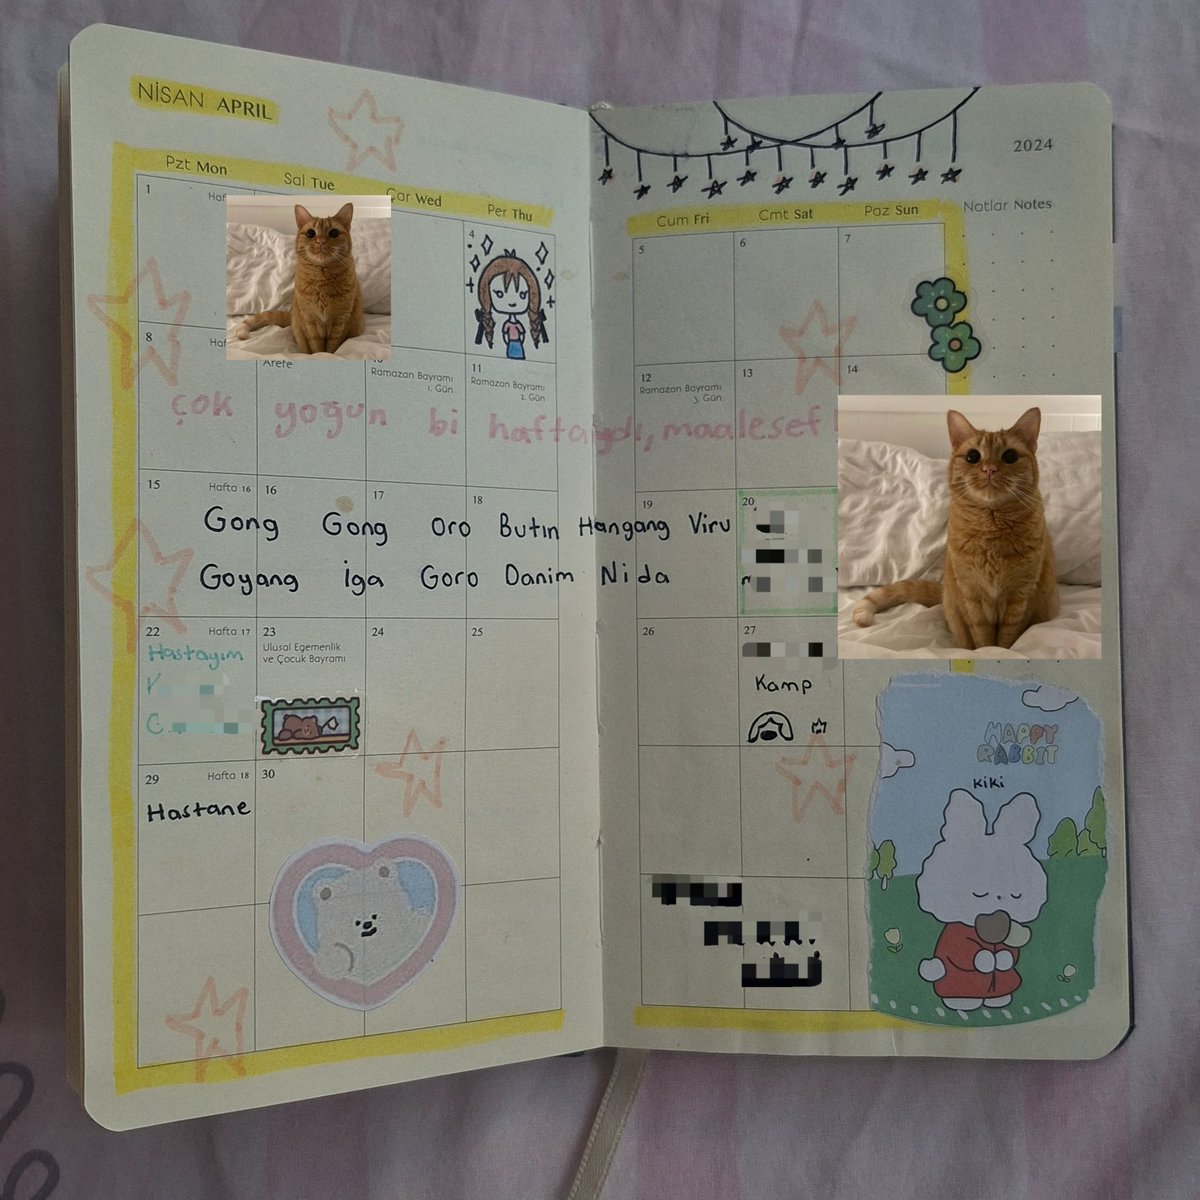 NİSAN APRIL
2024
Pzt Mon
Sal Tue
Çar Wed
Per Thu
Cum Fri
Cmt Sat
Paz Sun
Notlar Notes
1
4
5
6
7
8
Arefe
Ramazan Bayramı
1. Gün
11
Ramazan Bayramı
2. Gün
12
Ramazan Bayramı
3. Gün
13
14
çok yoğun bi haftaydı, maalesef!
15 Hafta 16
16
17
18
19
20
Gong Gong Oro Butin Hangang Viru
Goyang iga Goro Danim Nida
22 Hafta 17
Hastayım
23
Ulusal Egemenlik
ve Çocuk Bayramı
24
25
26
27
Kamp
29 Hafta 18
Hastane
30
HAPPY
RABBIT
KiKi